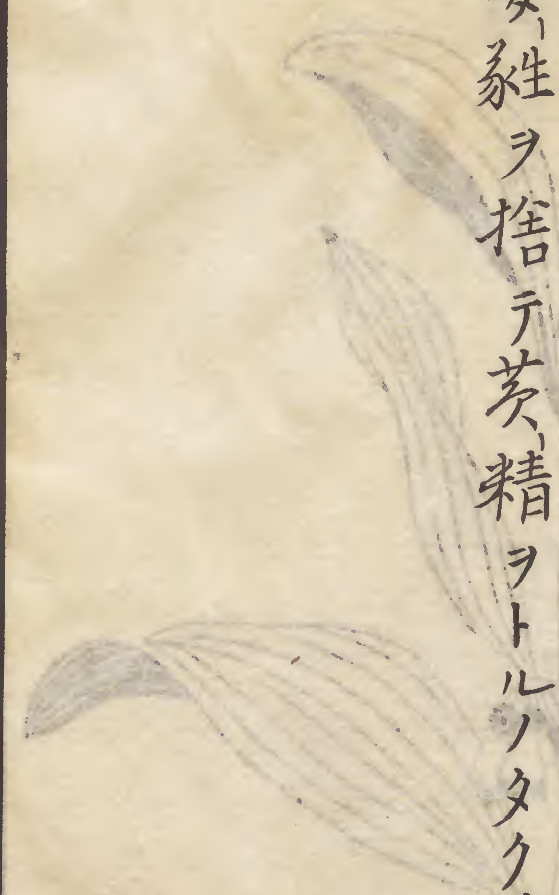 ヲ捨テ黄精ヲトルノタク